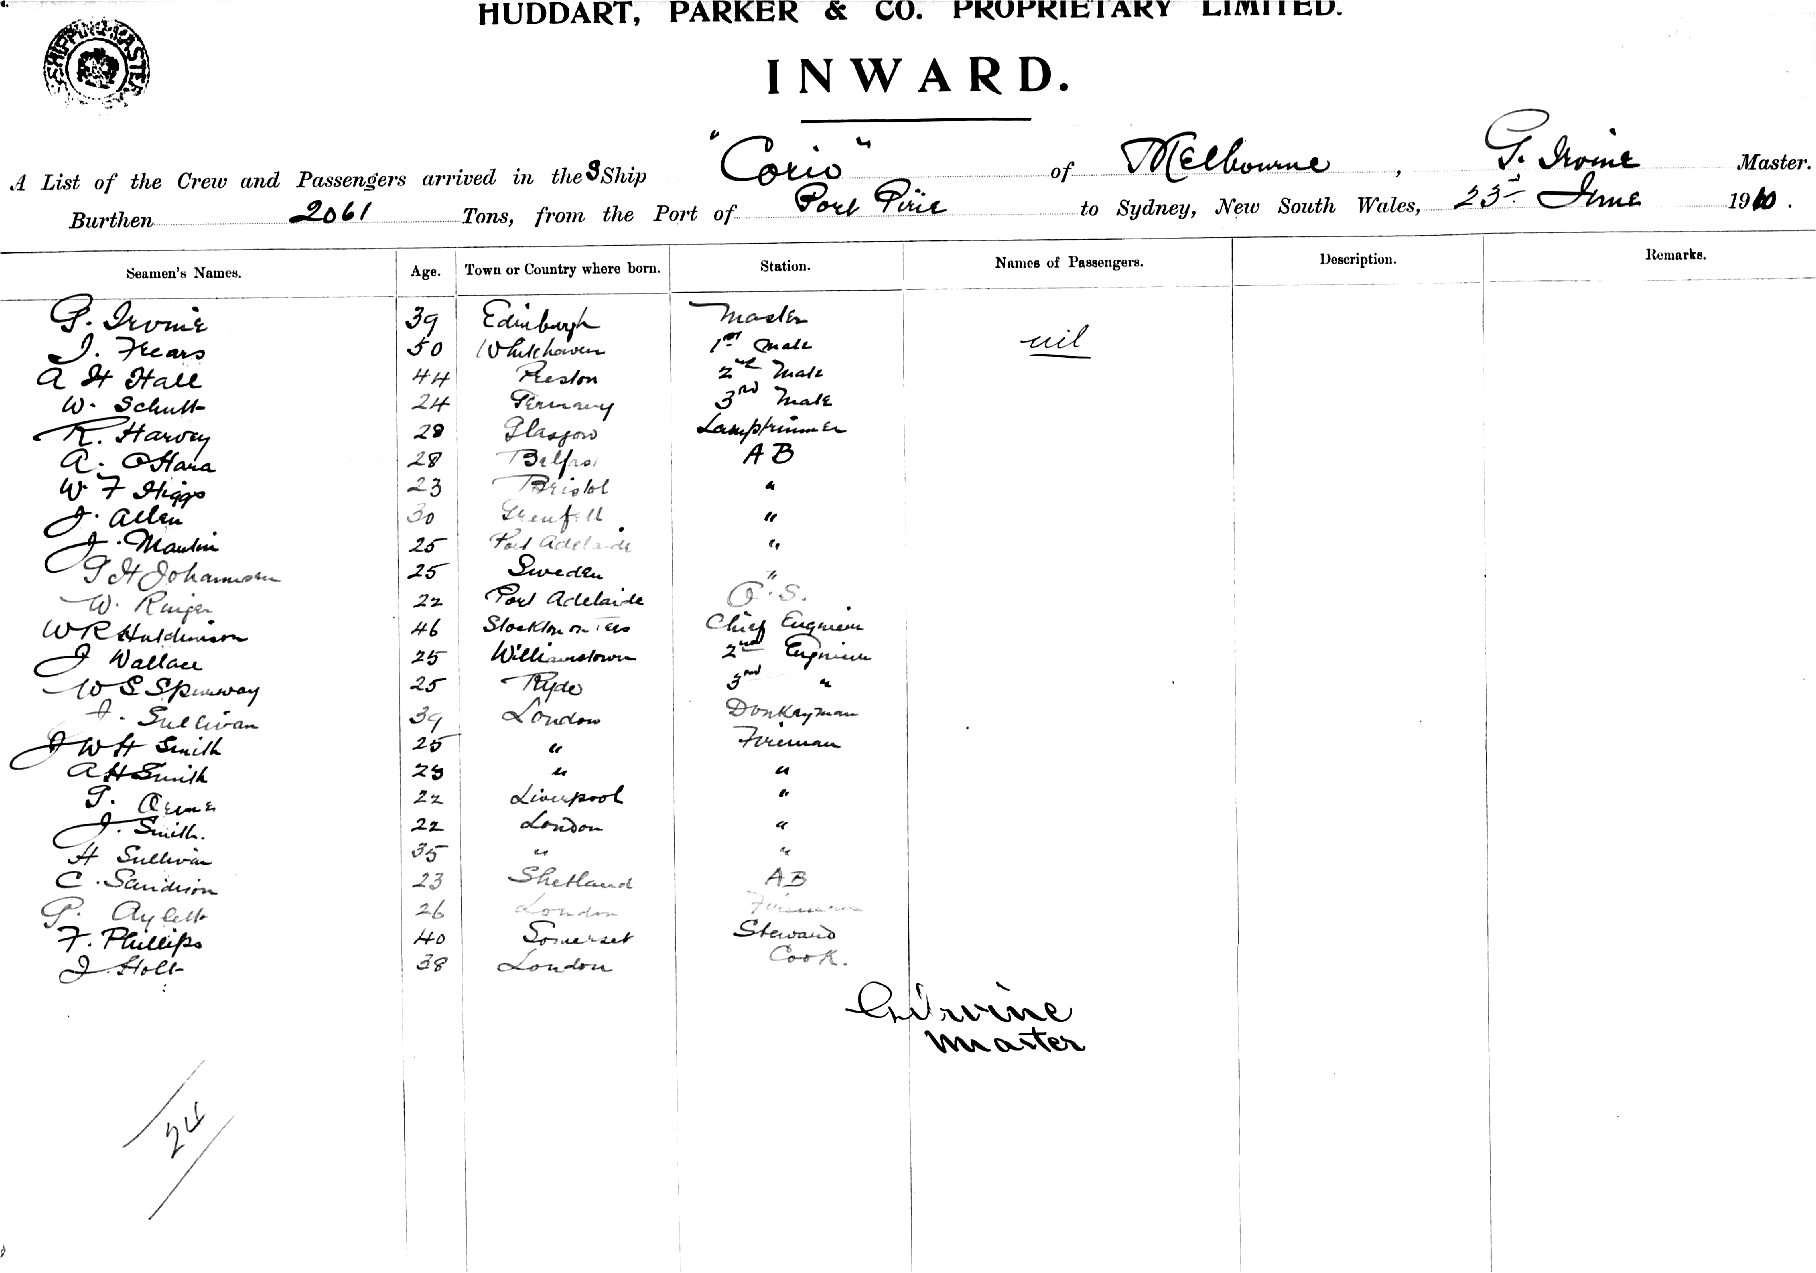 HUDDART, PARKER & CO. PROPRIETARY LIMITED.
SHIPPING MASTER
INWARD.
A List of the Crew and Passengers arrived in the S Ship "Corio" of Melbourne, G. Irvine Master.
Burthen 2061 Tons, from the Port of Port Pirie to Sydney, New South Wales, 23rd June 1910.
Seamen's Names. Age. Town or Country where born. Station. Names of Passengers. Description. Remarks.
G. Irvine 39 Edinburgh Master
J. Fears 50 Whitehaven 1st Mate nil
A H Hall 44 Preston 2nd Mate
W. Schutt 24 Germany 3rd Mate
R. Harvey 28 Glasgow Lamptrimmer
A. OHara 28 Belfast A B
W F Higgs 23 Bristol "
J. Allen 30 Grenfell "
J. 25 Port Adelaide "
G H Johannsen 25 Sweden "
W. Ringer 22 Port Adelaide O. S.
W R Hutchinson 46 Stockton on Tees Chief Engineer
J Wallace 25 Williamstown 2nd Engineer
W S Spurway 25 Ryde 3rd "
J. Sullivan 39 London Donkeyman
J W H Smith 25 " Fireman
A H Smith 28 " "
G. 22 Liverpool "
J. Smith. 22 London "
H Sullivan 35 " "
C. Sandison 23 Shetland A B
G. Aylett 26 London Fireman
F. Phillips 40 Somerset Steward
J Holt 38 London Cook.
G Irvine
Master
24